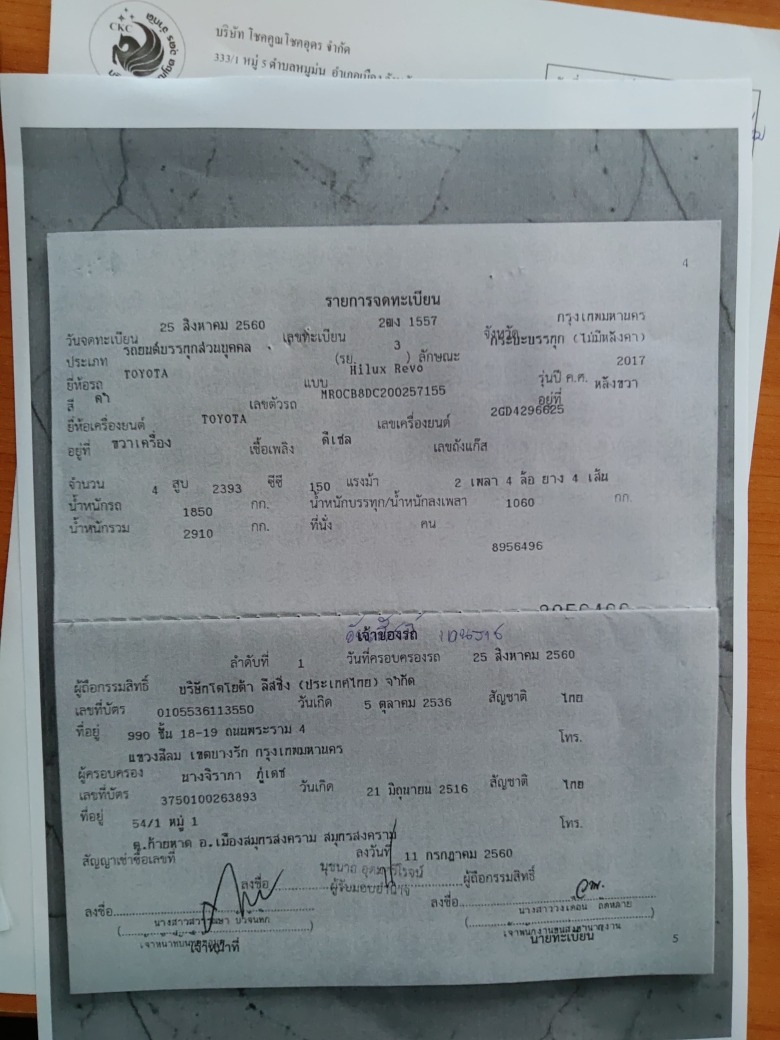 CKC
บริษัท โชคคูณโชคอุดร จำกัด
333/1 หมู่ 5 ตำบลหมูม่น อำเภอเมือง
4
รายการจดทะเบียน
วันจดทะเบียน 25 สิงหาคม 2560 เลขทะเบียน 2ฒง 1557 จังหวัด กรุงเทพมหานคร
ประเภท รถยนต์บรรทุกส่วนบุคคล (รย. 3 ) ลักษณะ กระบะบรรทุก (ไม่มีหลังคา)
ยี่ห้อรถ TOYOTA แบบ Hilux Revo รุ่นปี ค.ศ. 2017
สี ดำ เลขตัวรถ MR0CB8DC200257155 อยู่ที่ หลังขวา
ยี่ห้อเครื่องยนต์ TOYOTA เลขเครื่องยนต์ 2GD4296625
อยู่ที่ ขวาเครื่อง เชื้อเพลิง ดีเซล เลขถังแก๊ส
จำนวน 4 สูบ 2393 ซีซี 150 แรงม้า 2 เพลา 4 ล้อ ยาง 4 เส้น
น้ำหนักรถ 1850 กก. น้ำหนักบรรทุก/น้ำหนักลงเพลา 1060 กก.
น้ำหนักรวม 2910 กก. ที่นั่ง คน
8956496
เจ้าของรถ
ลำดับที่ 1 วันที่ครอบครองรถ 25 สิงหาคม 2560
ผู้ถือกรรมสิทธิ์ บริษัทโตโยต้า ลีสซิ่ง (ประเทศไทย) จำกัด
เลขที่บัตร 0105536113550 วันเกิด 5 ตุลาคม 2536 สัญชาติ ไทย
ที่อยู่ 990 ชั้น 18-19 ถนนพระราม 4 โทร.
แขวงสีลม เขตบางรัก กรุงเทพมหานคร
ผู้ครอบครอง นางจิราภา ภู่เดช
เลขที่บัตร 3750100263893 วันเกิด 21 มิถุนายน 2516 สัญชาติ ไทย
ที่อยู่ 54/1 หมู่ 1 โทร.
ต.ท้ายหาด อ.เมืองสมุทรสงคราม สมุทรสงคราม
สัญญาเช่าซื้อเลขที่ ลงวันที่ 11 กรกฎาคม 2560
ลงชื่อ ผู้รับมอบอำนาจ ผู้ถือกรรมสิทธิ์
ลงชื่อ ลงชื่อ
เจ้าหน้าที่ นายทะเบียน
5